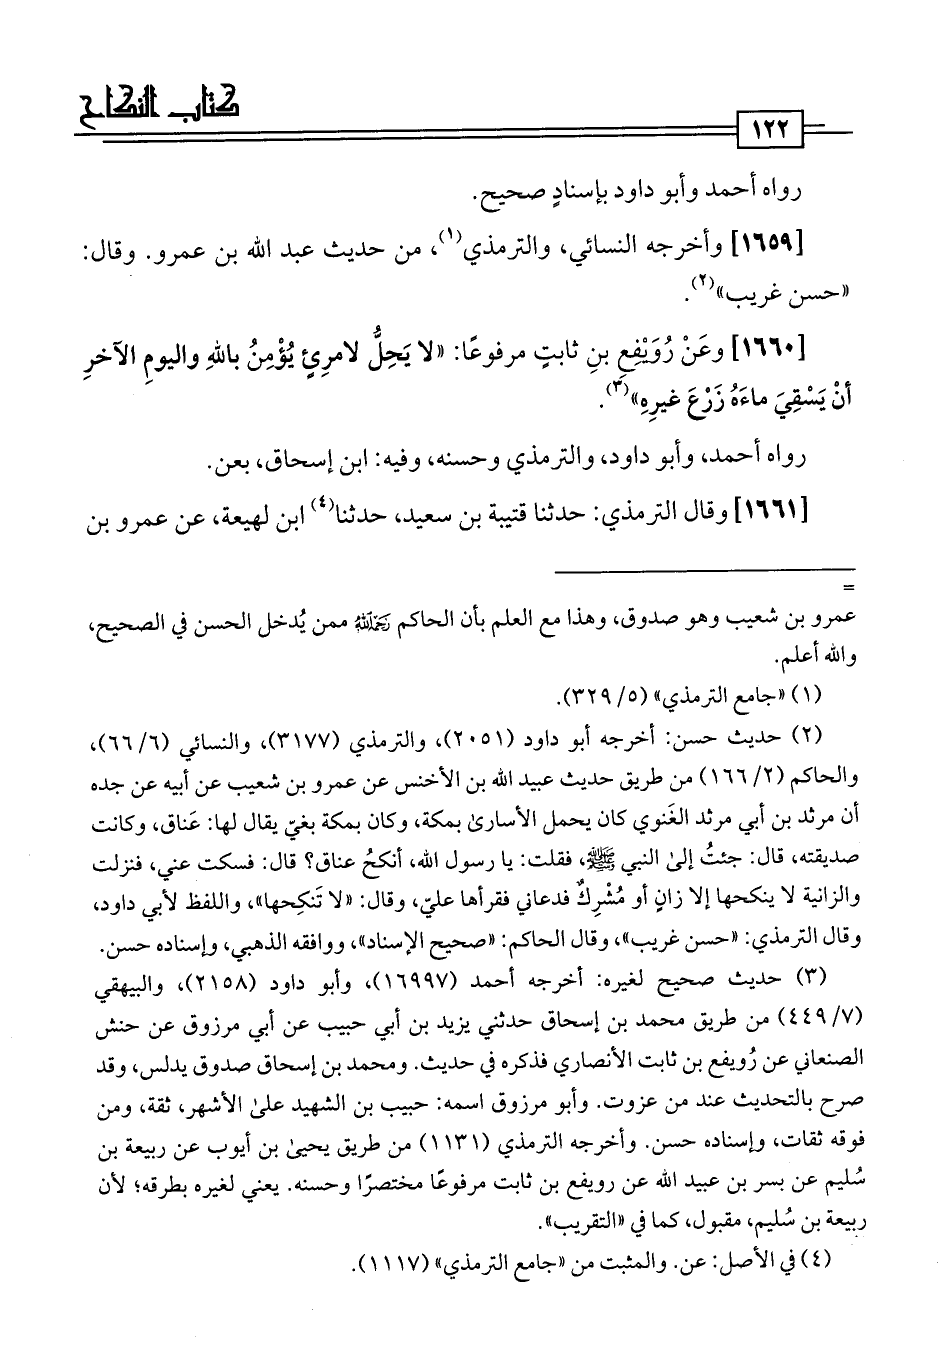 كتاب النكاح
١٢٢
رواه أحمد وأبو داود بإسنادٍ صحيح.
[١٦٥٩] وأخرجه النسائي، والترمذي(١)، من حديث عبد الله بن عمرو. وقال:
«حسن غريب»(٢).
[١٦٦٠] وعَنْ رُوَيْفِعِ بنِ ثابتٍ مرفوعًا: «لا يَحِلُّ لامرئٍ يُؤْمِنُ باللهِ واليومِ الآخرِ
أنْ يَسْقِيَ ماءَهُ زَرْعَ غيرِهِ»(٣).
رواه أحمد، وأبو داود، والترمذي وحسنه، وفيه: ابن إسحاق، بعن.
[١٦٦١] وقال الترمذي: حدثنا قتيبة بن سعيد، حدثنا(٤) ابن لهيعة، عن عمرو بن
=
عمرو بن شعيب وهو صدوق، وهذا مع العلم بأن الحاكم رَحِمَهُ اللهُ ممن يُدخل الحسن في الصحيح،
والله أعلم.
(١) «جامع الترمذي» (٥/ ٣٢٩).
(٢) حديث حسن: أخرجه أبو داود (٢٠٥١)، والترمذي (٣١٧٧)، والنسائي (٦/ ٦٦)،
والحاكم (٢/ ١٦٦) من طريق حديث عبيد الله بن الأخنس عن عمرو بن شعيب عن أبيه عن جده
أن مرثد بن أبي مرثد الغَنوي كان يحمل الأسارىٰ بمكة، وكان بمكة بغيّ يقال لها: عَناق، وكانت
صديقته، قال: جئتُ إلىٰ النبي ﷺ، فقلت: يا رسول الله، أنكحُ عناق؟ قال: فسكت عني، فنزلت
والزانية لا ينكحها إلا زانٍ أو مُشْرِكٌ فدعاني فقرأها عليّ، وقال: «لا تَنكِحها»، واللفظ لأبي داود،
وقال الترمذي: «حسن غريب»، وقال الحاكم: «صحيح الإسناد»، ووافقه الذهبي، وإسناده حسن.
(٣) حديث صحيح لغيره: أخرجه أحمد (١٦٩٩٧)، وأبو داود (٢١٥٨)، والبيهقي
(٧/ ٤٤٩) من طريق محمد بن إسحاق حدثني يزيد بن أبي حبيب عن أبي مرزوق عن حنش
الصنعاني عن رُويفع بن ثابت الأنصاري فذكره في حديث. ومحمد بن إسحاق صدوق يدلس، وقد
صرح بالتحديث عند من عزوت. وأبو مرزوق اسمه: حبيب بن الشهيد علىٰ الأشهر، ثقة، ومن
فوقه ثقات، وإسناده حسن. وأخرجه الترمذي (١١٣١) من طريق يحيىٰ بن أيوب عن ربيعة بن
سُليم عن بسر بن عبيد الله عن رويفع بن ثابت مرفوعًا مختصرًا وحسنه. يعني لغيره بطرقه؛ لأن
ربيعة بن سُليم، مقبول، كما في «التقريب».
(٤) في الأصل: عن. والمثبت من «جامع الترمذي» (١١١٧).